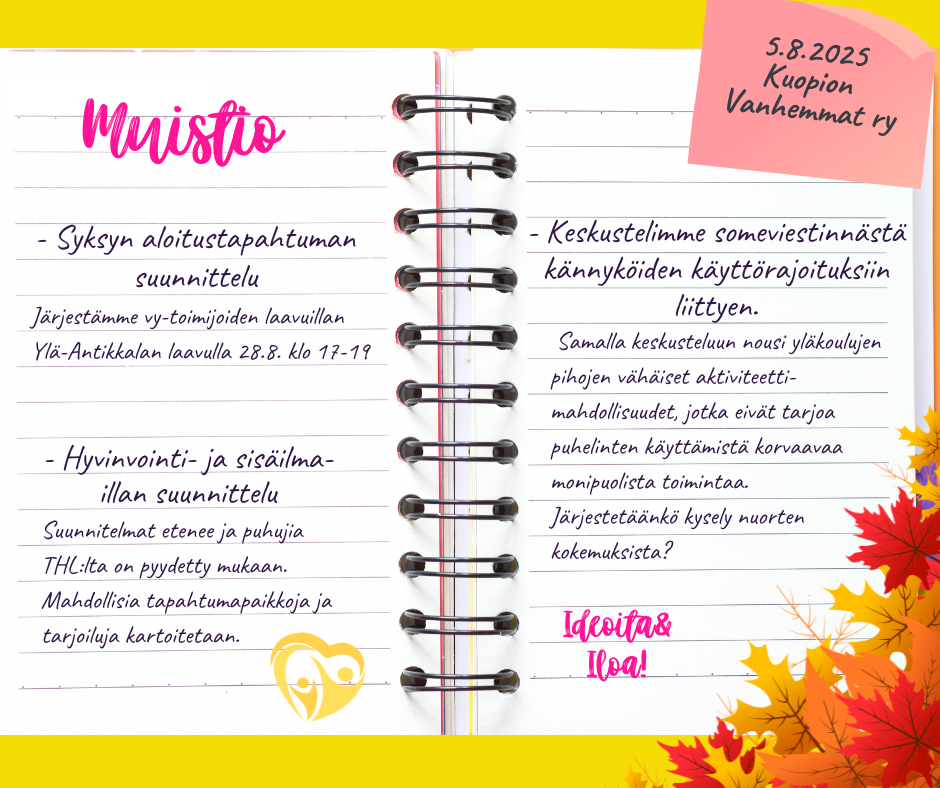 Muistio
- Syksyn aloitustapahtuman
suunnittelu
Järjestämme vy-toimijoiden laavuillan
Ylä-Antikkalan laavulla 28.8. klo 17-19
- Hyvinvointi- ja sisäilma-
illan suunnittelu
Suunnitelmat etenee ja puhujia
THL:lta on pyydetty mukaan.
Mahdollisia tapahtumapaikkoja ja
tarjoiluja kartoitetaan.
5.8.2025
Kuopion
Vanhemmat ry
- Keskustelimme someviestinnästä
kännyköiden käyttörajoituksiin
liittyen.
Samalla keskusteluun nousi yläkoulujen
pihojen vähäiset aktiviteetti-
mahdollisuudet, jotka eivät tarjoa
puhelinten käyttämistä korvaavaa
monipuolista toimintaa.
Järjestetäänkö kysely nuorten
kokemuksista?
Ideoita&
Iloa!